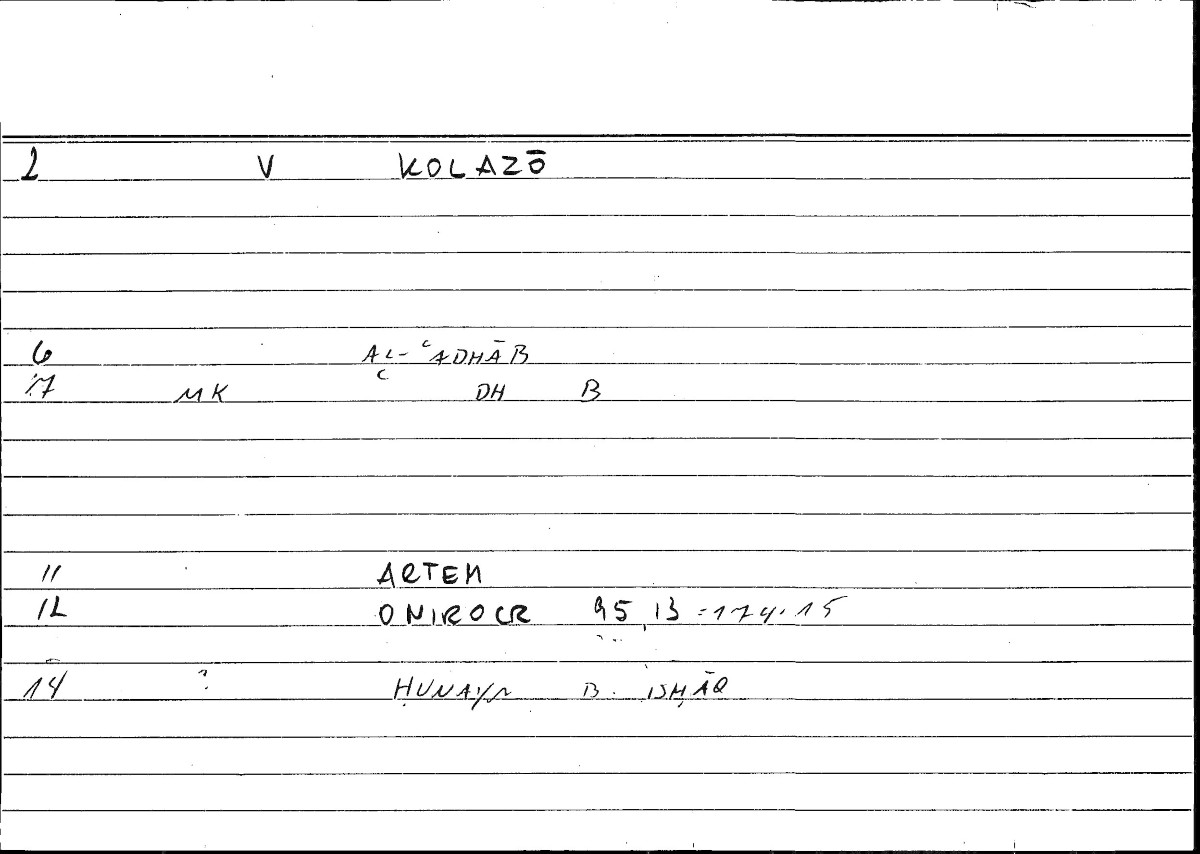 2 V KOLAZŌ
6 AL-ʿADHĀB
7 MK ʿ DH B
11 ARTEM
12 ONIROCR 95,13 = 174.15
14 ? ḤUNAYN B. ISḤĀQ